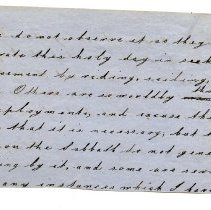 do not observe it as they
this holy day in seek
ement by riding, reading,
Others are so worldly
ployments, and excuse the
that it is necessary; but i
on the Sabbath do not gene
ing by it, and some are seve
any instances which I have